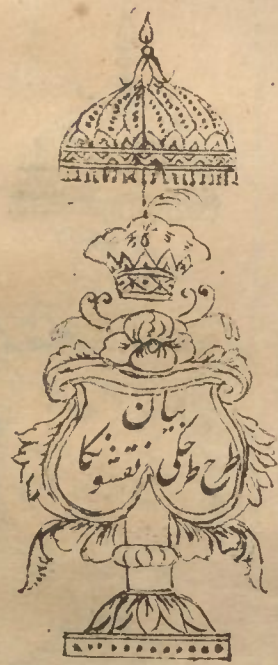 بیان
طرح طرحکی نقشونکا